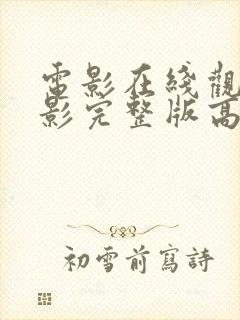 電影在綫觀
影完整版高
初雪前寫詩